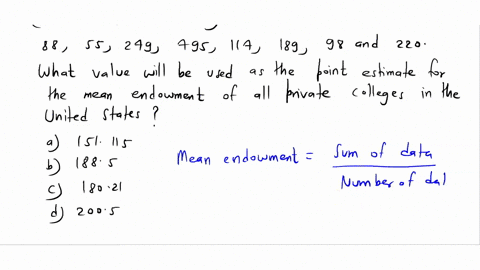 88, 55, 249, 495, 114, 189, 98 and 220.
What value will be used as the point estimate for
the mean endowment of all private colleges in the
United States?
a) 151.115
b) 188.5
c) 180.21
d) 200.5
Mean endowment = Sum of data
Number of dat